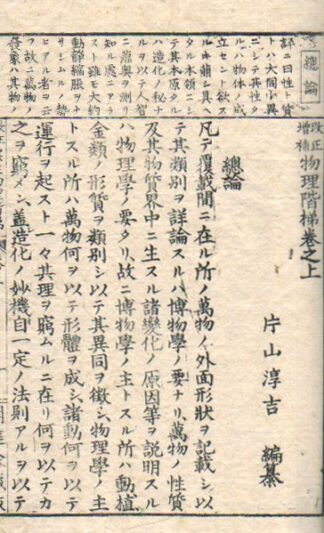 改正増補物理階梯卷之上
片山淳吉 編纂
總論
凡テ覆載間ニ在ル所ノ萬物ノ外面形狀ヲ記載シ以
テ其類別ヲ詳論スルハ博物學ノ要ナリ萬物ノ性質
及其物質界中ニ生スル諸變化ノ原因等ヲ説明スル
ハ物理學ノ要タリ故ニ博物學ノ主トスル所ハ動植
金類ノ形質ヲ類別シ以テ其異同ヲ徴シ物理學ノ主
トスル所ハ萬物何ヲ以テ形體ヲ成シ諸動何ヲ以テ
運行ヲ起スト一々其理ヲ窮ムルニ在リ何ヲ以テカ
之ヲ窮メン蓋造化ノ妙機自一定ノ法則アルヲ以テ
總論
評ニ曰性ト質
トハ大同小異
ニシテ其性タ
ルハ物体ノ成
立セント欲ス
ルキ萠シ具ヘ
テ其本原タル
タル本領ニシ
ハ造化ノ秘ナ
ルヲ以テ人智
ニ蘊奥ヲ測リ
知ル處ニアラ
スト雖モ大約
動靜縮脹ヲナ
サシムル 勢
ヒアル者ヲ云
フ故ニ萬物ノ
發象ハ其物ノ